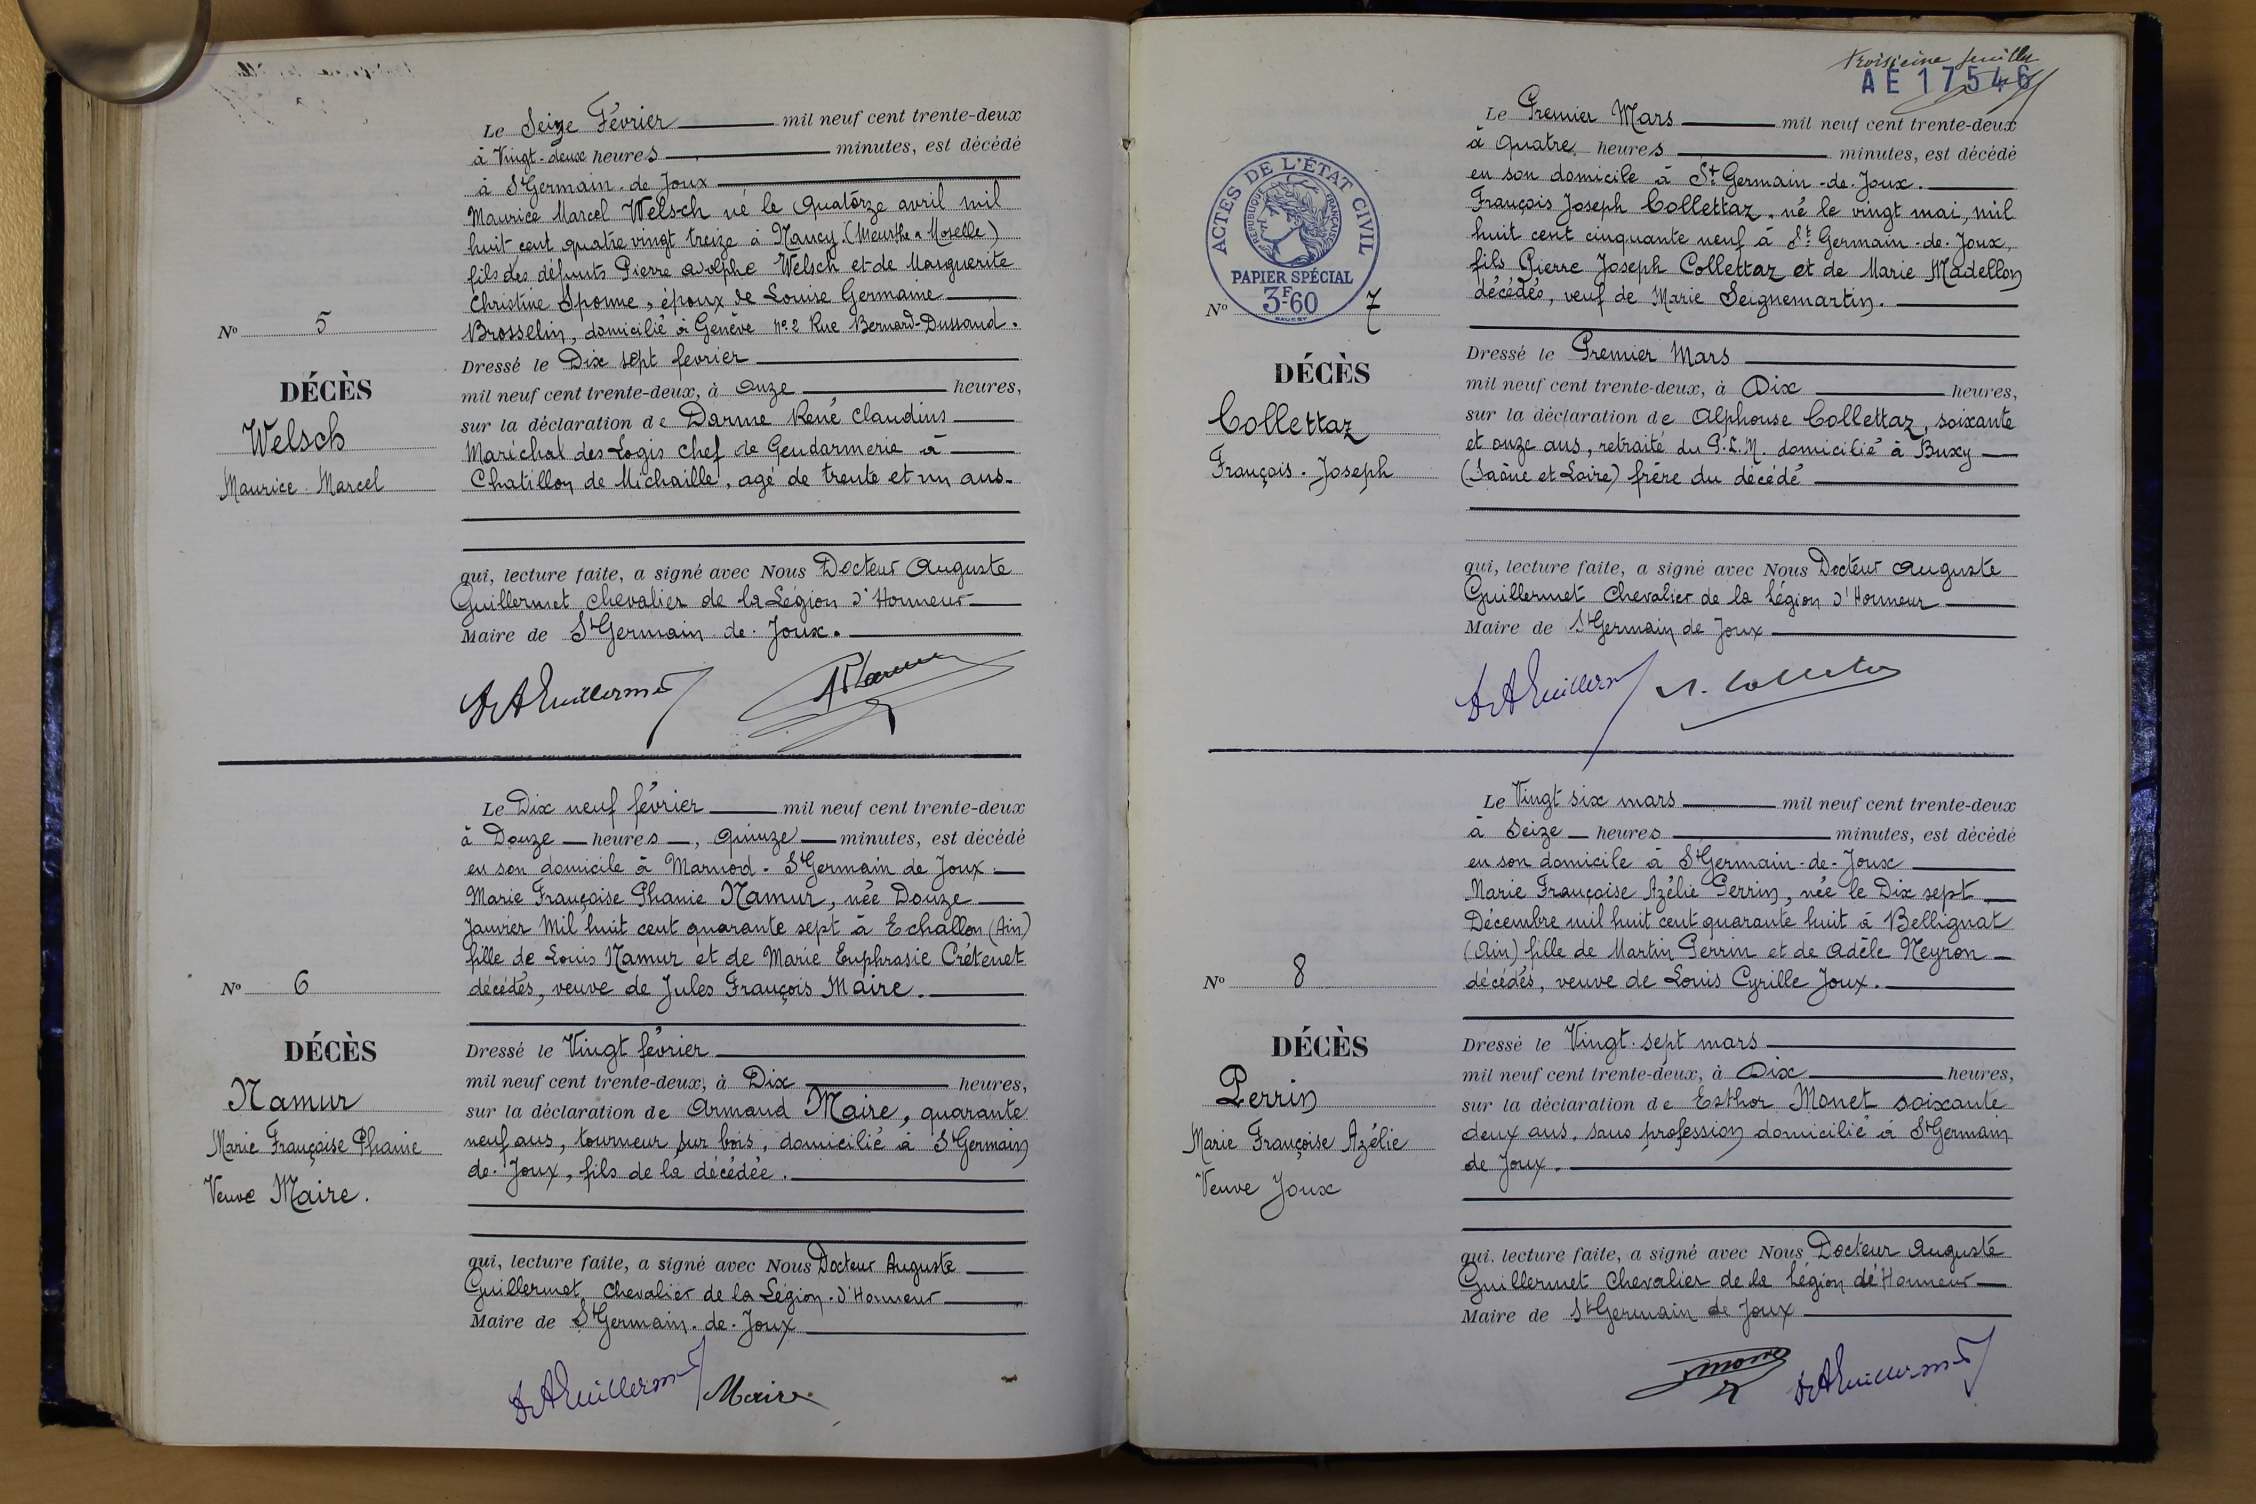 Le Seize Février mil neuf cent trente-deux
à Vingt-deux heures minutes, est décédé
à St Germain-de Joux
Maurice Marcel Welsch né le Quatorze avril mil
huit cent quatre vingt treize à Nancy (Meurthe & Moselle)
fils des défunts Pierre Adolphe Welsch et de Marguerite
Christine Sponne, époux de Louise Germaine
Brosselin, domicilié à Genève No 2 Rue Bernard-Dussaud.
No 5
DÉCÈS
Welsch
Maurice Marcel
Dressé le Dix sept février
mil neuf cent trente-deux, à Onze heures,
sur la déclaration de Darme René Claudius
Maréchal des Logis Chef de Gendarmerie à
Chatillon de Michaille, agé de trente et un ans.
qui, lecture faite, a signé avec Nous Docteur Auguste
Guillermet Chevalier de la Légion d'Honneur
Maire de St Germain de Joux.
Dr A Guillermet
Le Dix neuf février mil neuf cent trente-deux
à Douze heures, quinze minutes, est décédé
en son domicile à Marnod-St Germain de Joux
Marie Françoise Phanie Namur, née Douze
Janvier Mil huit cent quarante sept à Echallon (Ain)
fille de Louis Namur et de Marie Euphrasie Crétenet
décédés, veuve de Jules François Maire.
No 6
DÉCÈS
Namur
Marie Françoise Phanie
Veuve Maire.
Dressé le Vingt février
mil neuf cent trente-deux, à Dix heures,
sur la déclaration de Armand Maire, quarante
neuf ans, tourneur sur bois, domicilié à St Germain
de Joux, fils de la décédée.
qui, lecture faite, a signé avec Nous Docteur Auguste
Guillermet Chevalier de la Légion d'Honneur
Maire de St Germain-de-Joux
Dr A Guillermet Maire
troisième feuille
AE 17546
Le Premier Mars mil neuf cent trente-deux
à Quatre heures minutes, est décédé
en son domicile à St Germain-de-Joux.
François Joseph Collettaz, né le vingt mai, mil
huit cent cinquante neuf à St Germain-de-Joux,
fils Pierre Joseph Collettaz et de Marie Madellon
décédés, veuf de Marie Seignemartin.
ACTES DE L'ÉTAT CIVIL
RÉPUBLIQUE FRANÇAISE
PAPIER SPÉCIAL
3F60
No 7
DÉCÈS
Collettaz
François-Joseph
Dressé le Premier Mars
mil neuf cent trente-deux, à Dix heures,
sur la déclaration de Alphonse Collettaz, soixante
et onze ans, retraité du P.L.M. domicilié à Buxy
(Saône et Loire) frère du décédé
qui, lecture faite, a signé avec Nous Docteur Auguste
Guillermet Chevalier de la légion d'Honneur
Maire de St Germain de Joux
Dr A Guillermet
Le Vingt six mars mil neuf cent trente-deux
à Seize heures minutes, est décédé
en son domicile à St Germain-de-Joux
Marie Françoise Azélie Perrin, née le Dix sept
Décembre mil huit cent quarante huit à Bellignat
(Ain) fille de Martin Perrin et de Adèle Neyron
décédés, veuve de Louis Cyrille Joux.
No 8
DÉCÈS
Perrin
Marie Françoise Azélie
Veuve Joux
Dressé le Vingt-sept mars
mil neuf cent trente-deux, à Dix heures,
sur la déclaration de Esthor Monet soixante
deux ans, sans profession domicilié à St Germain
de Joux.
qui, lecture faite, a signé avec Nous Docteur Auguste
Guillermet Chevalier de la légion de Honneur
Maire de St Germain de Joux
Dr A Guillermet